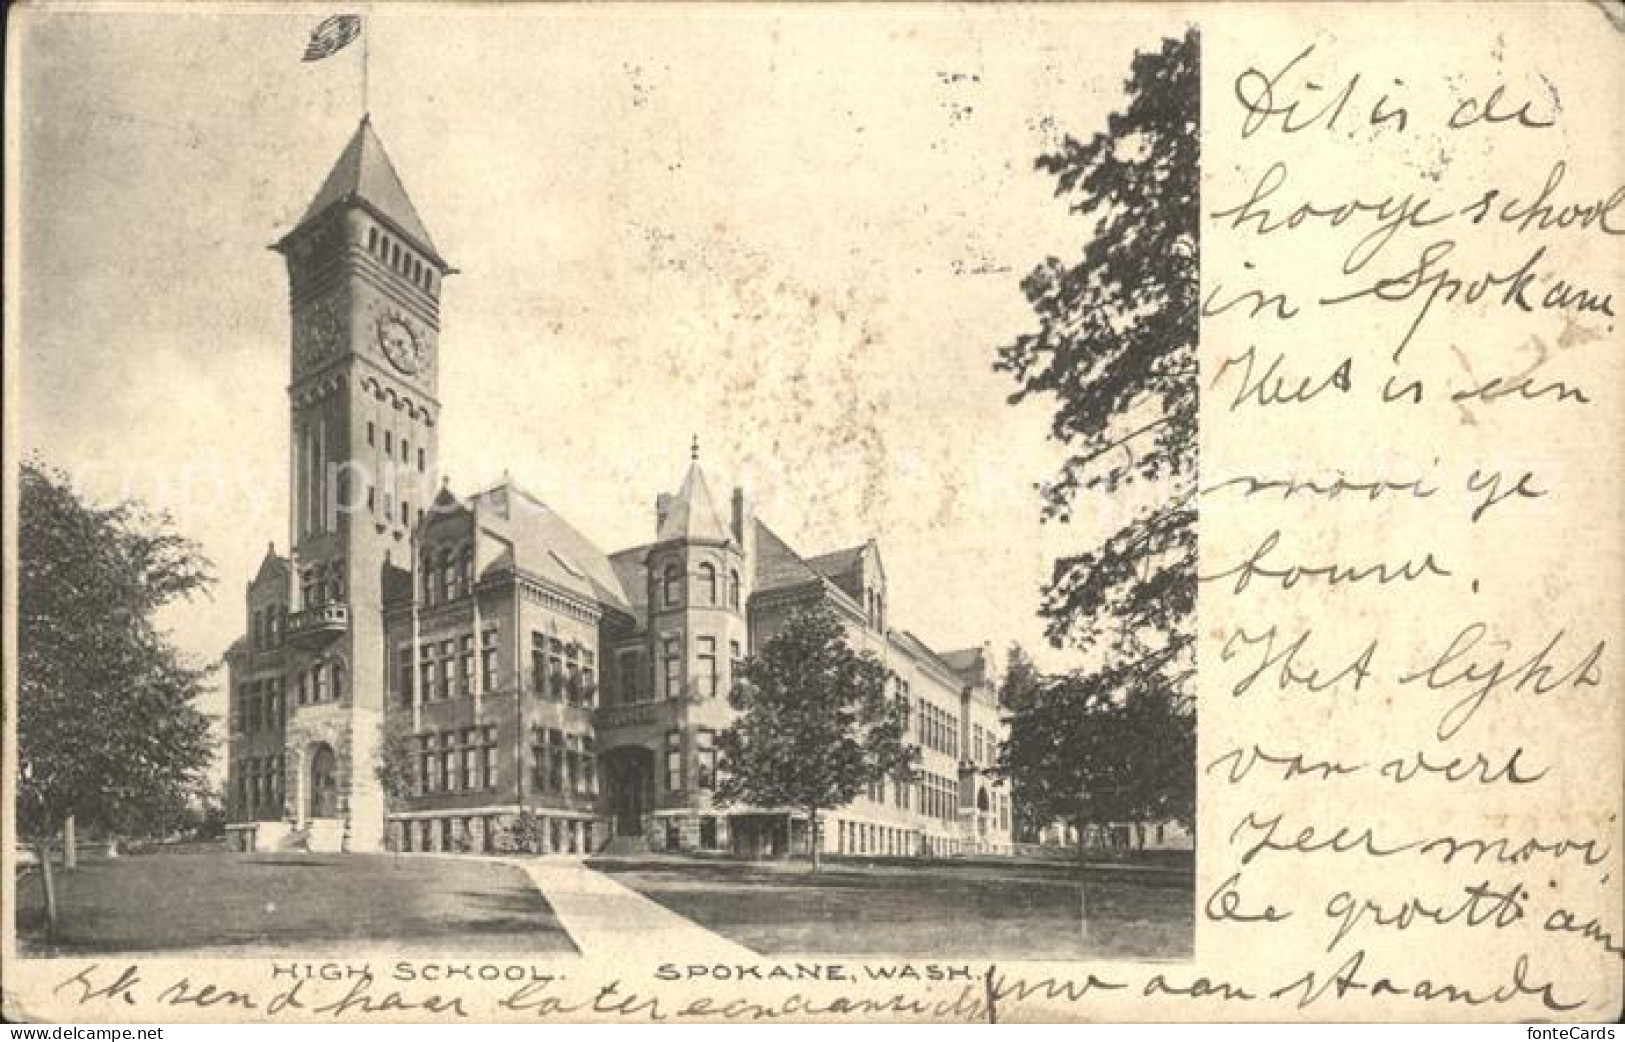 Dit is de
hooge school
in Spokane
Het is een
mooi ge
bouw.
Het lijkt
van verl
zeer mooi,
De groett aan
uw aanstaande
HIGH SCHOOL. SPOKANE, WASH.
Ik zend haar later een aanzicht
Delcampe.net
fonteCards